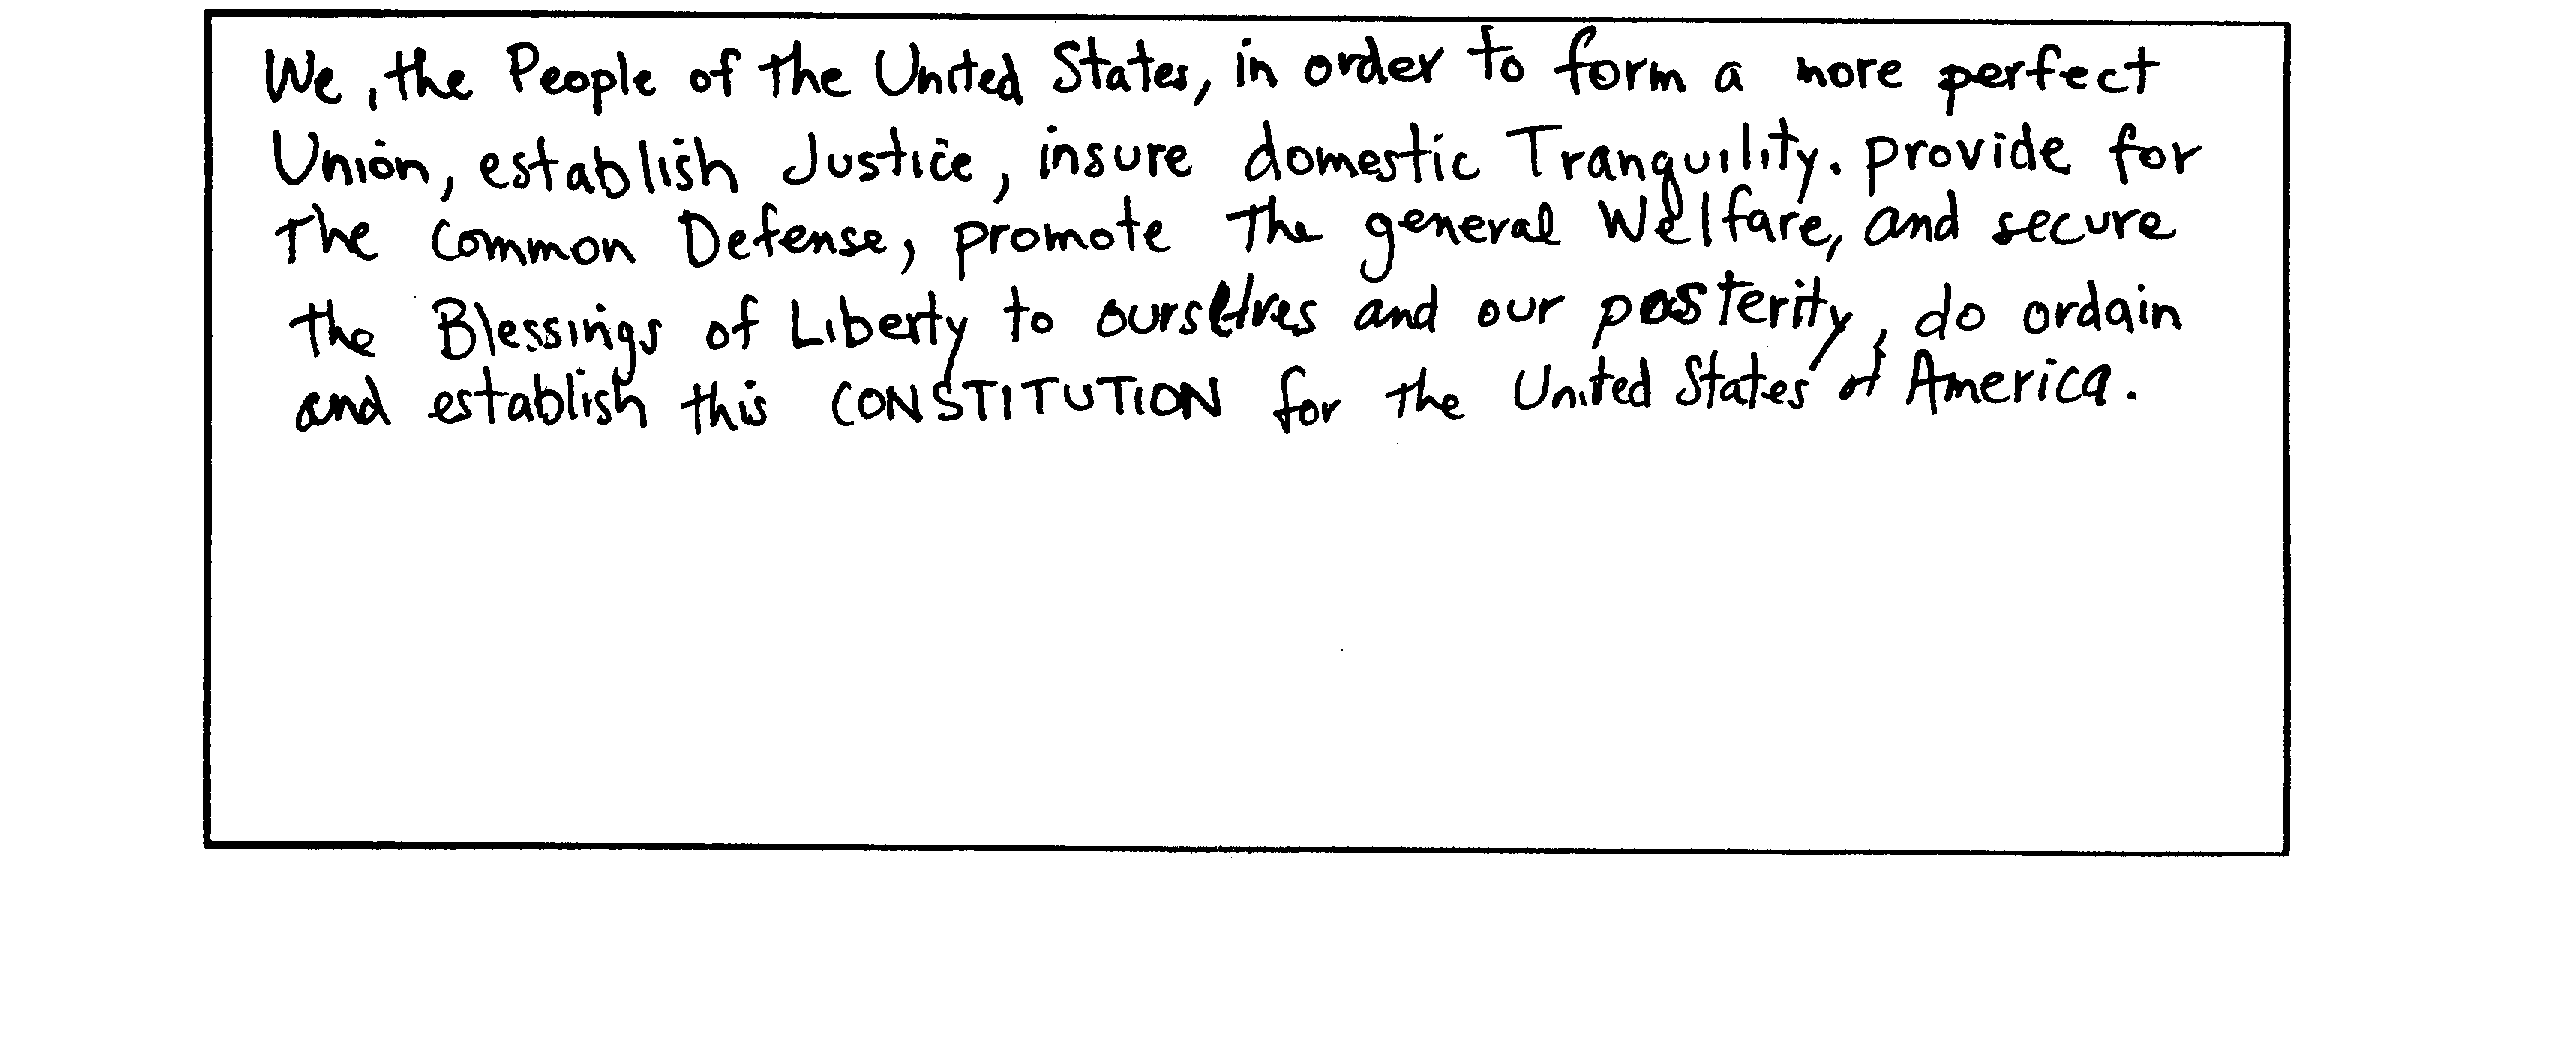 We, the People of the United States, in order to form a more perfect
Union, establish Justice, insure domestic Tranquility. provide for
The Common Defense, promote The general Welfare, and secure
the Blessings of Liberty to ourselves and our posterity, do ordain
and establish this CONSTITUTION for the United States of America.